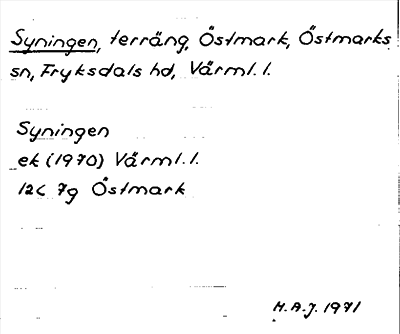 Syningen, terräng, Östmark, Östmarks
sn, Fryksdals hd, Värml. l.
Syningen
ek (1970) Värml. l.
12C 7g Östmark
H.A.J. 1971